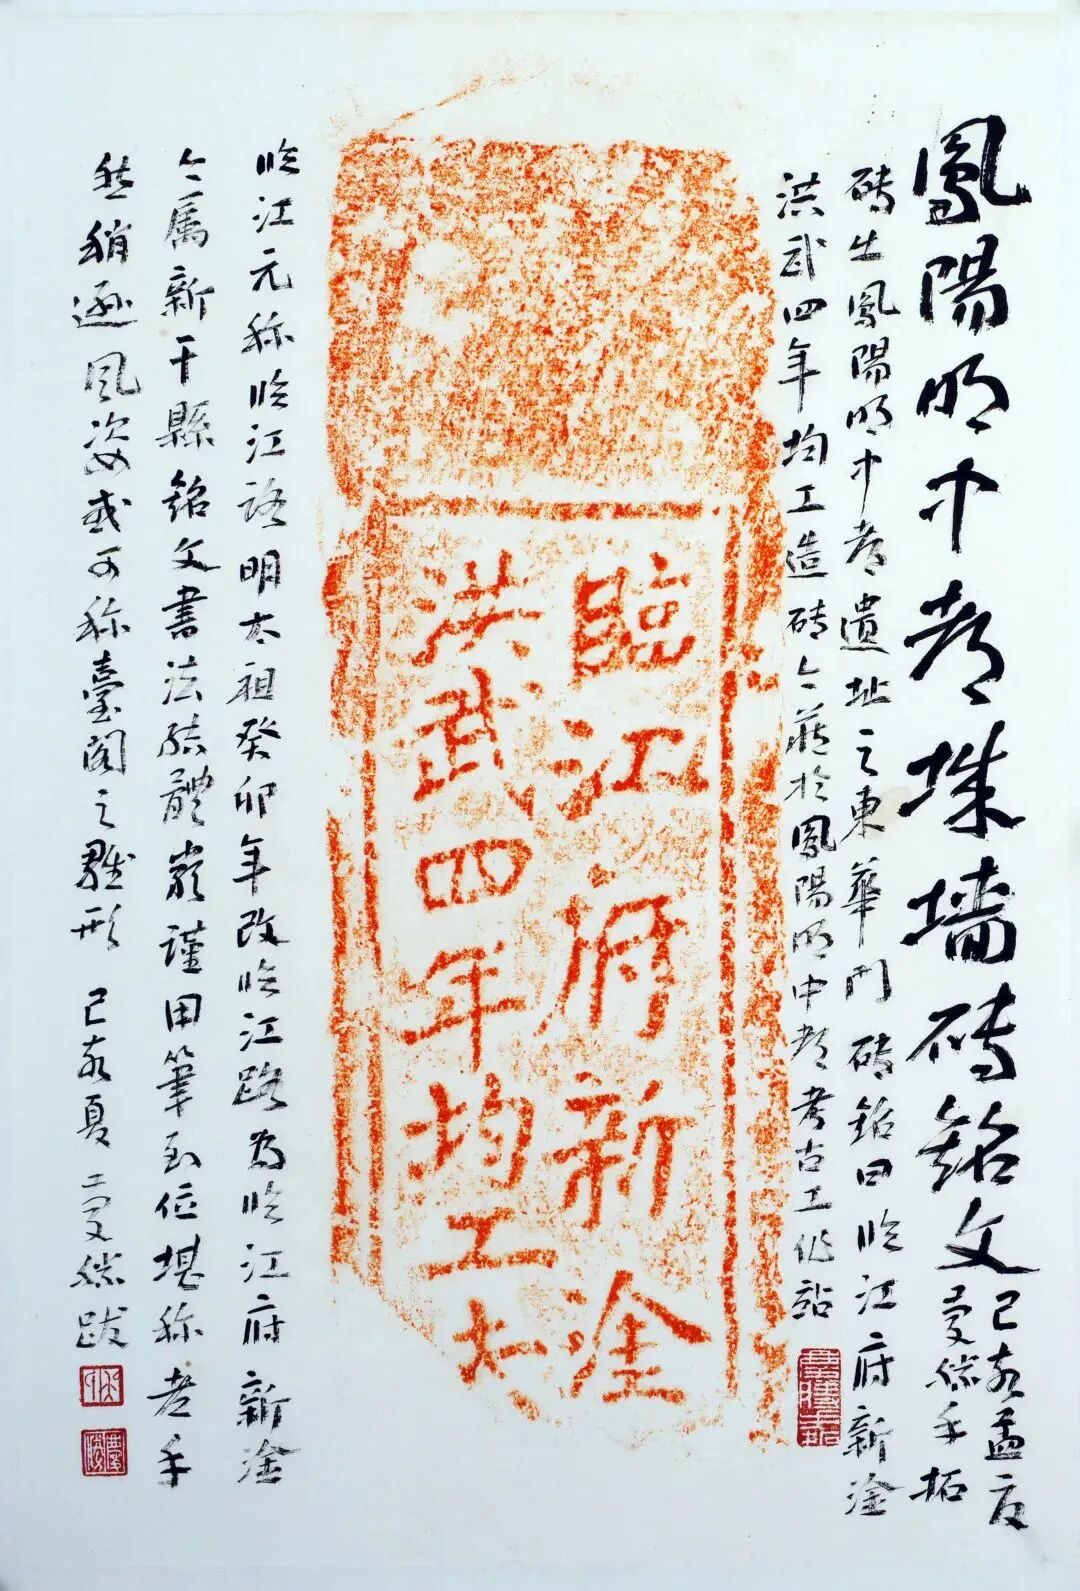 鳳陽明中都城墙砖銘文
己亥孟夏
曼然手拓
砖出鳳陽明中都遺址之東華門砖銘曰临江府新淦
洪武四年均工造砖今藏於鳳陽明中都考古工作站
臨江府新淦
洪武四年均工夫
临江元称临江路明太祖癸卯年改临江路为临江府新淦
今属新干縣銘文書法结體嚴謹用筆到位堪称老手
然稍遜風姿或可称臺閣之雛形 己亥夏 曼然跋